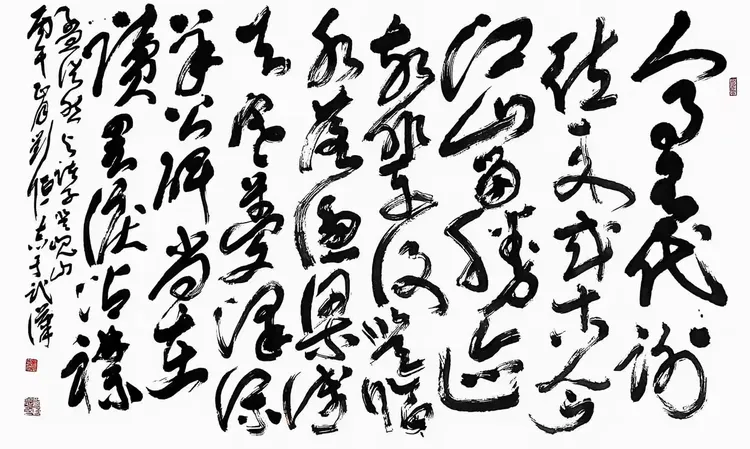 人事有代謝
往來成古今
江山留勝迹
我輩復登臨
水落魚梁淺
天寒夢澤深
羊公碑尚在
讀罷淚沾襟
孟浩然與諸子登峴山
丙午正月劉書于武漢